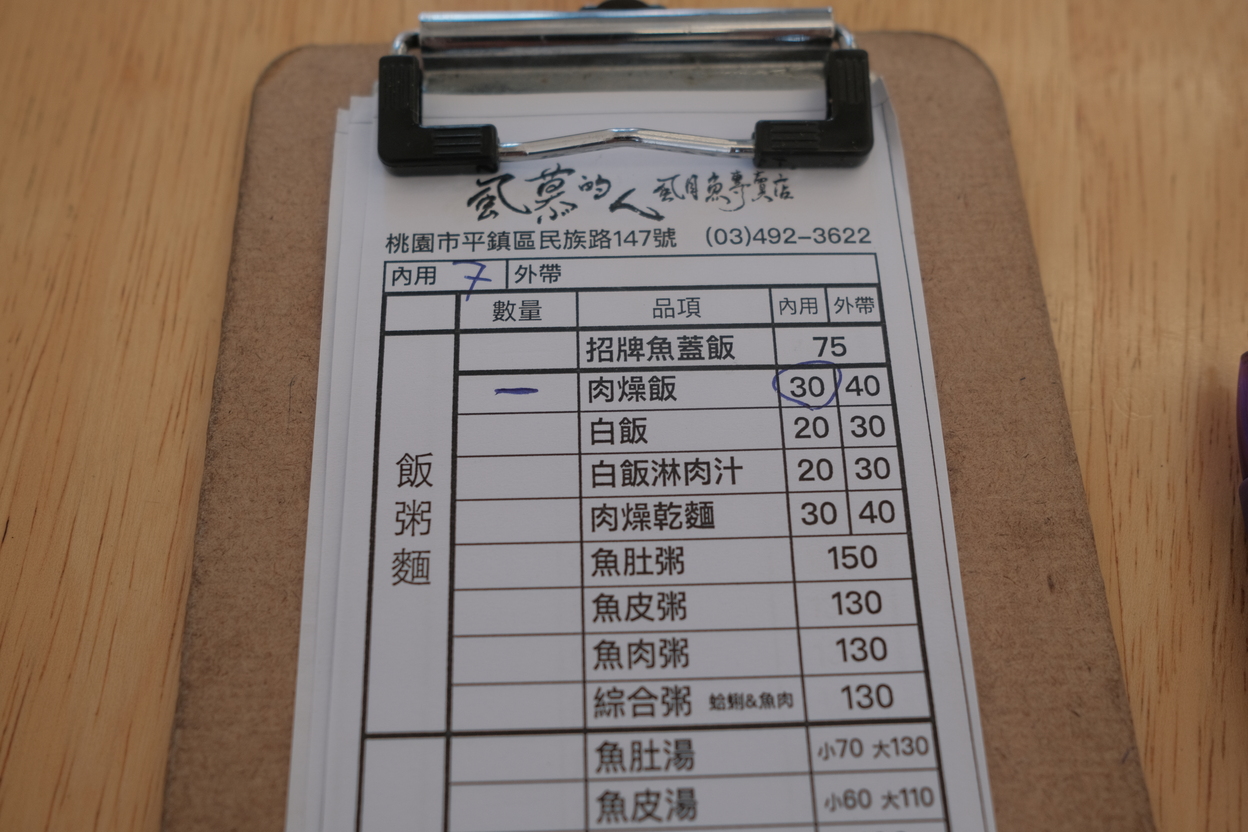 虱慕的人 虱目魚專賣店
桃園市平鎮區民族路147號 (03)492-3622
內用 7 外帶
數量 品項 內用 外帶
飯粥麵
招牌魚蓋飯 75
一 肉燥飯 30 40
白飯 20 30
白飯淋肉汁 20 30
肉燥乾麵 30 40
魚肚粥 150
魚皮粥 130
魚肉粥 130
綜合粥 蛤蜊&魚肉 130
魚肚湯 小70 大130
魚皮湯 小60 大110